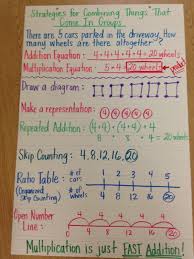 Strategies for Combining Things That
Come In Groups
There are 5 cars parked in the driveway. How
many wheels are there altogether?
Addition Equation: 4+4+4+4+4=20 wheels
Multiplication Equation: 5×4=20 wheels
Draw a diagram:
Make a representation:
4 4 4 4 4
Repeated Addition: (4+4)+(4+4)+4
8 + 8 + 4 = 20 wheels
Skip Counting: 4, 8, 12, 16, 20
Ratio Table: # of cars 1 2 3 4 5
(Organized Skip Counting) # of wheels 4 8 12 16 20
Open Number
Line:
0 4 8 12 16 20
Multiplication is just FAST Addition!